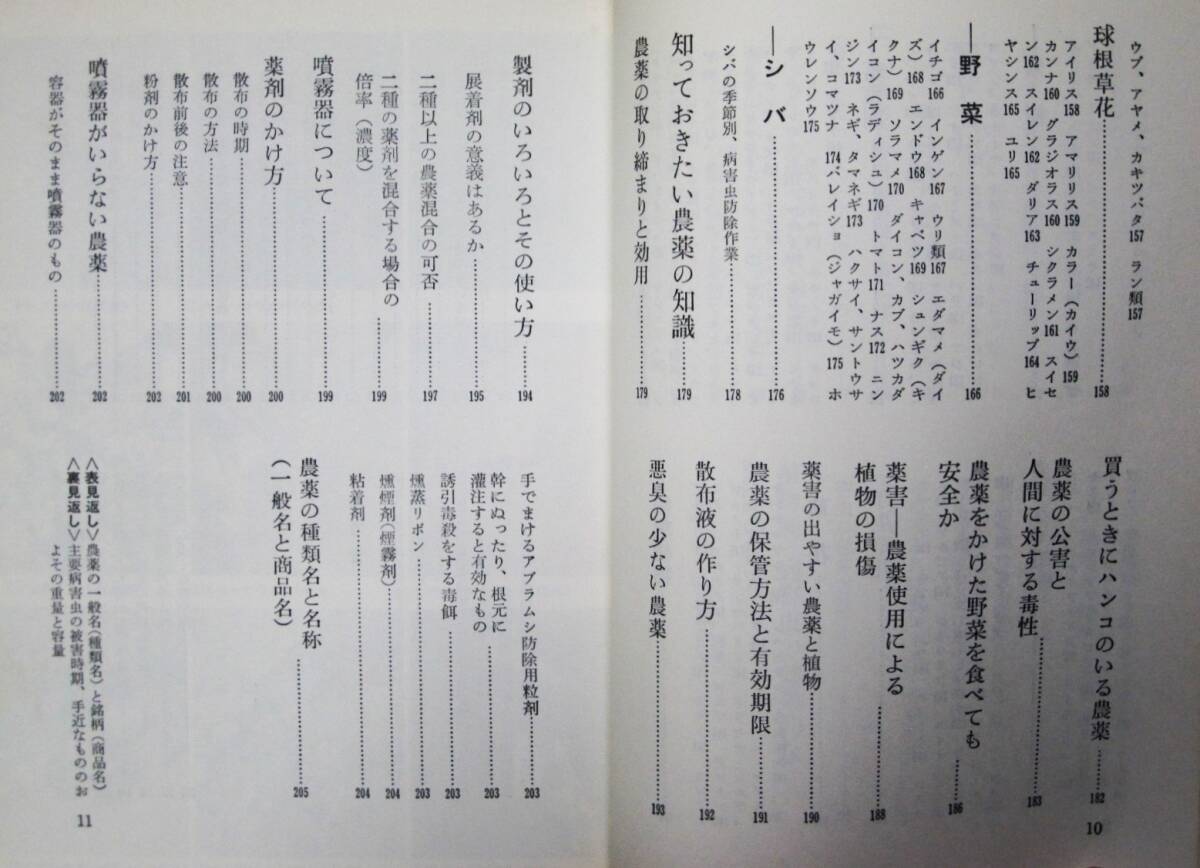 ウブ、アヤメ、カキツバタ157　ラン類157
球根草花……158
アイリス158　アマリリス159　カラー（カイウ）159
カンナ160　グラジオラス160　シクラメン161　スイセ
ン162　スイレン162　ダリア163　チューリップ164　ヒ
ヤシンス165　ユリ165
―野　菜……166
イチゴ166　インゲン167　ウリ類167　エダマメ（ダイ
ズ）168　エンドウ168　キャベツ169　シュンギク（キ
クナ）169　ソラマメ170　ダイコン、カブ、ハツカダ
イコン（ラディシュ）170　トマト171　ナス172　ニン
ジン173　ネギ、タマネギ173　ハクサイ、サントウサ
イ、コマツナ　174バレイショ（ジャガイモ）175　ホ
ウレンソウ175
―シ　バ……176
シバの季節別、病害虫防除作業……178
知っておきたい農薬の知識……179
農薬の取り締まりと効用……179
買うときにハンコのいる農薬……182
農薬の公害と
人間に対する毒性……183
農薬をかけた野菜を食べても
安全か……186
薬害―農薬使用による
植物の損傷……188
薬害の出やすい農薬と植物……190
農薬の保管方法と有効期限……191
散布液の作り方……192
悪臭の少ない農薬……193
10
製剤のいろいろとその使い方……194
展着剤の意義はあるか……195
二種以上の農薬混合の可否……197
二種の薬剤を混合する場合の
倍率（濃度）……199
噴霧器について……199
薬剤のかけ方……200
散布の時期……200
散布の方法……200
散布前後の注意……201
粉剤のかけ方……202
噴霧器がいらない農薬……202
容器がそのまま噴霧器のもの……202
手でまけるアブラムシ防除用粒剤……203
幹にぬったり、根元に
灌注すると有効なもの……203
誘引毒殺をする毒餌……203
燻蒸リボン……203
燻煙剤（煙霧剤）……204
粘着剤……204
農薬の種類名と名称
（一般名と商品名）……205
＜表見返し＞農薬の一般名（種類名）と銘柄（商品名）
＜裏見返し＞主要病害虫の被害時期、手近なもののお
よその重量と容量
11